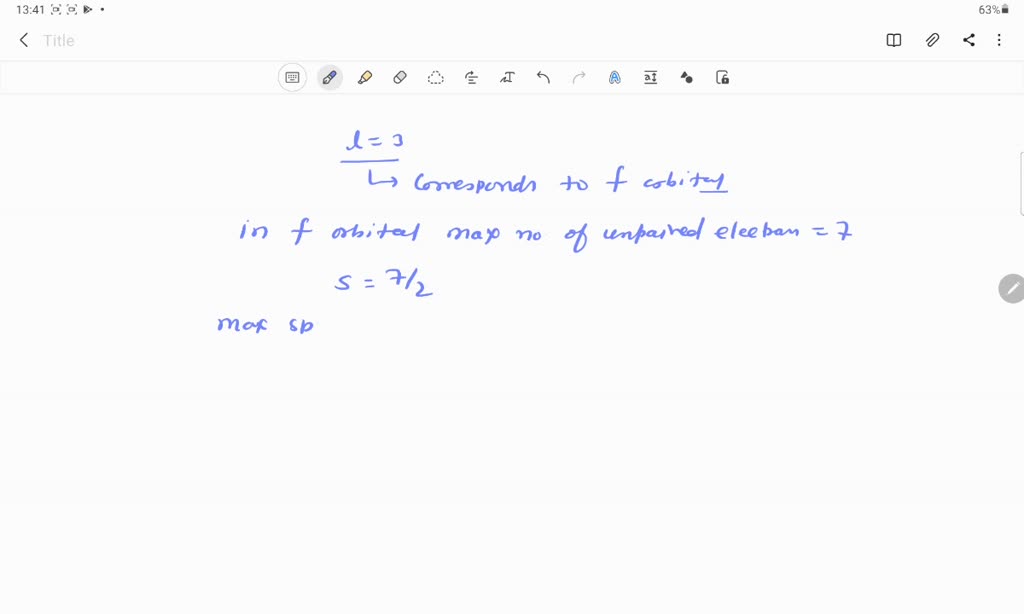 13:41
63%
Title
l = 3
↳ Corresponds to f orbital
in f orbital max no of unpaired electron = 7
s = 7/2
max sp